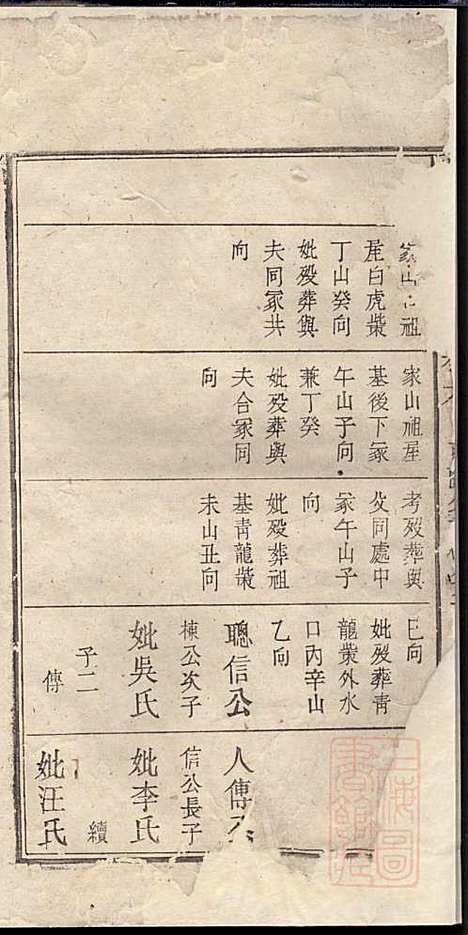 家山祖
屋白虎葬
丁山癸向
妣殁葬與
夫同冢共
向
家山祖屋
基後下冢
午山子向
兼丁癸
妣殁葬與
夫合冢同
向
考殁葬與
父同處中
冢午山子
向
妣殁葬祖
基青龍葬
未山丑向
巳向
妣殁葬青
龍葬外水
口內辛山
乙向
聰信公
棟公次子
妣吳氏
子二
傳
人傳公
信公長子
妣李氏
續
妣汪氏
上海圖書館藏